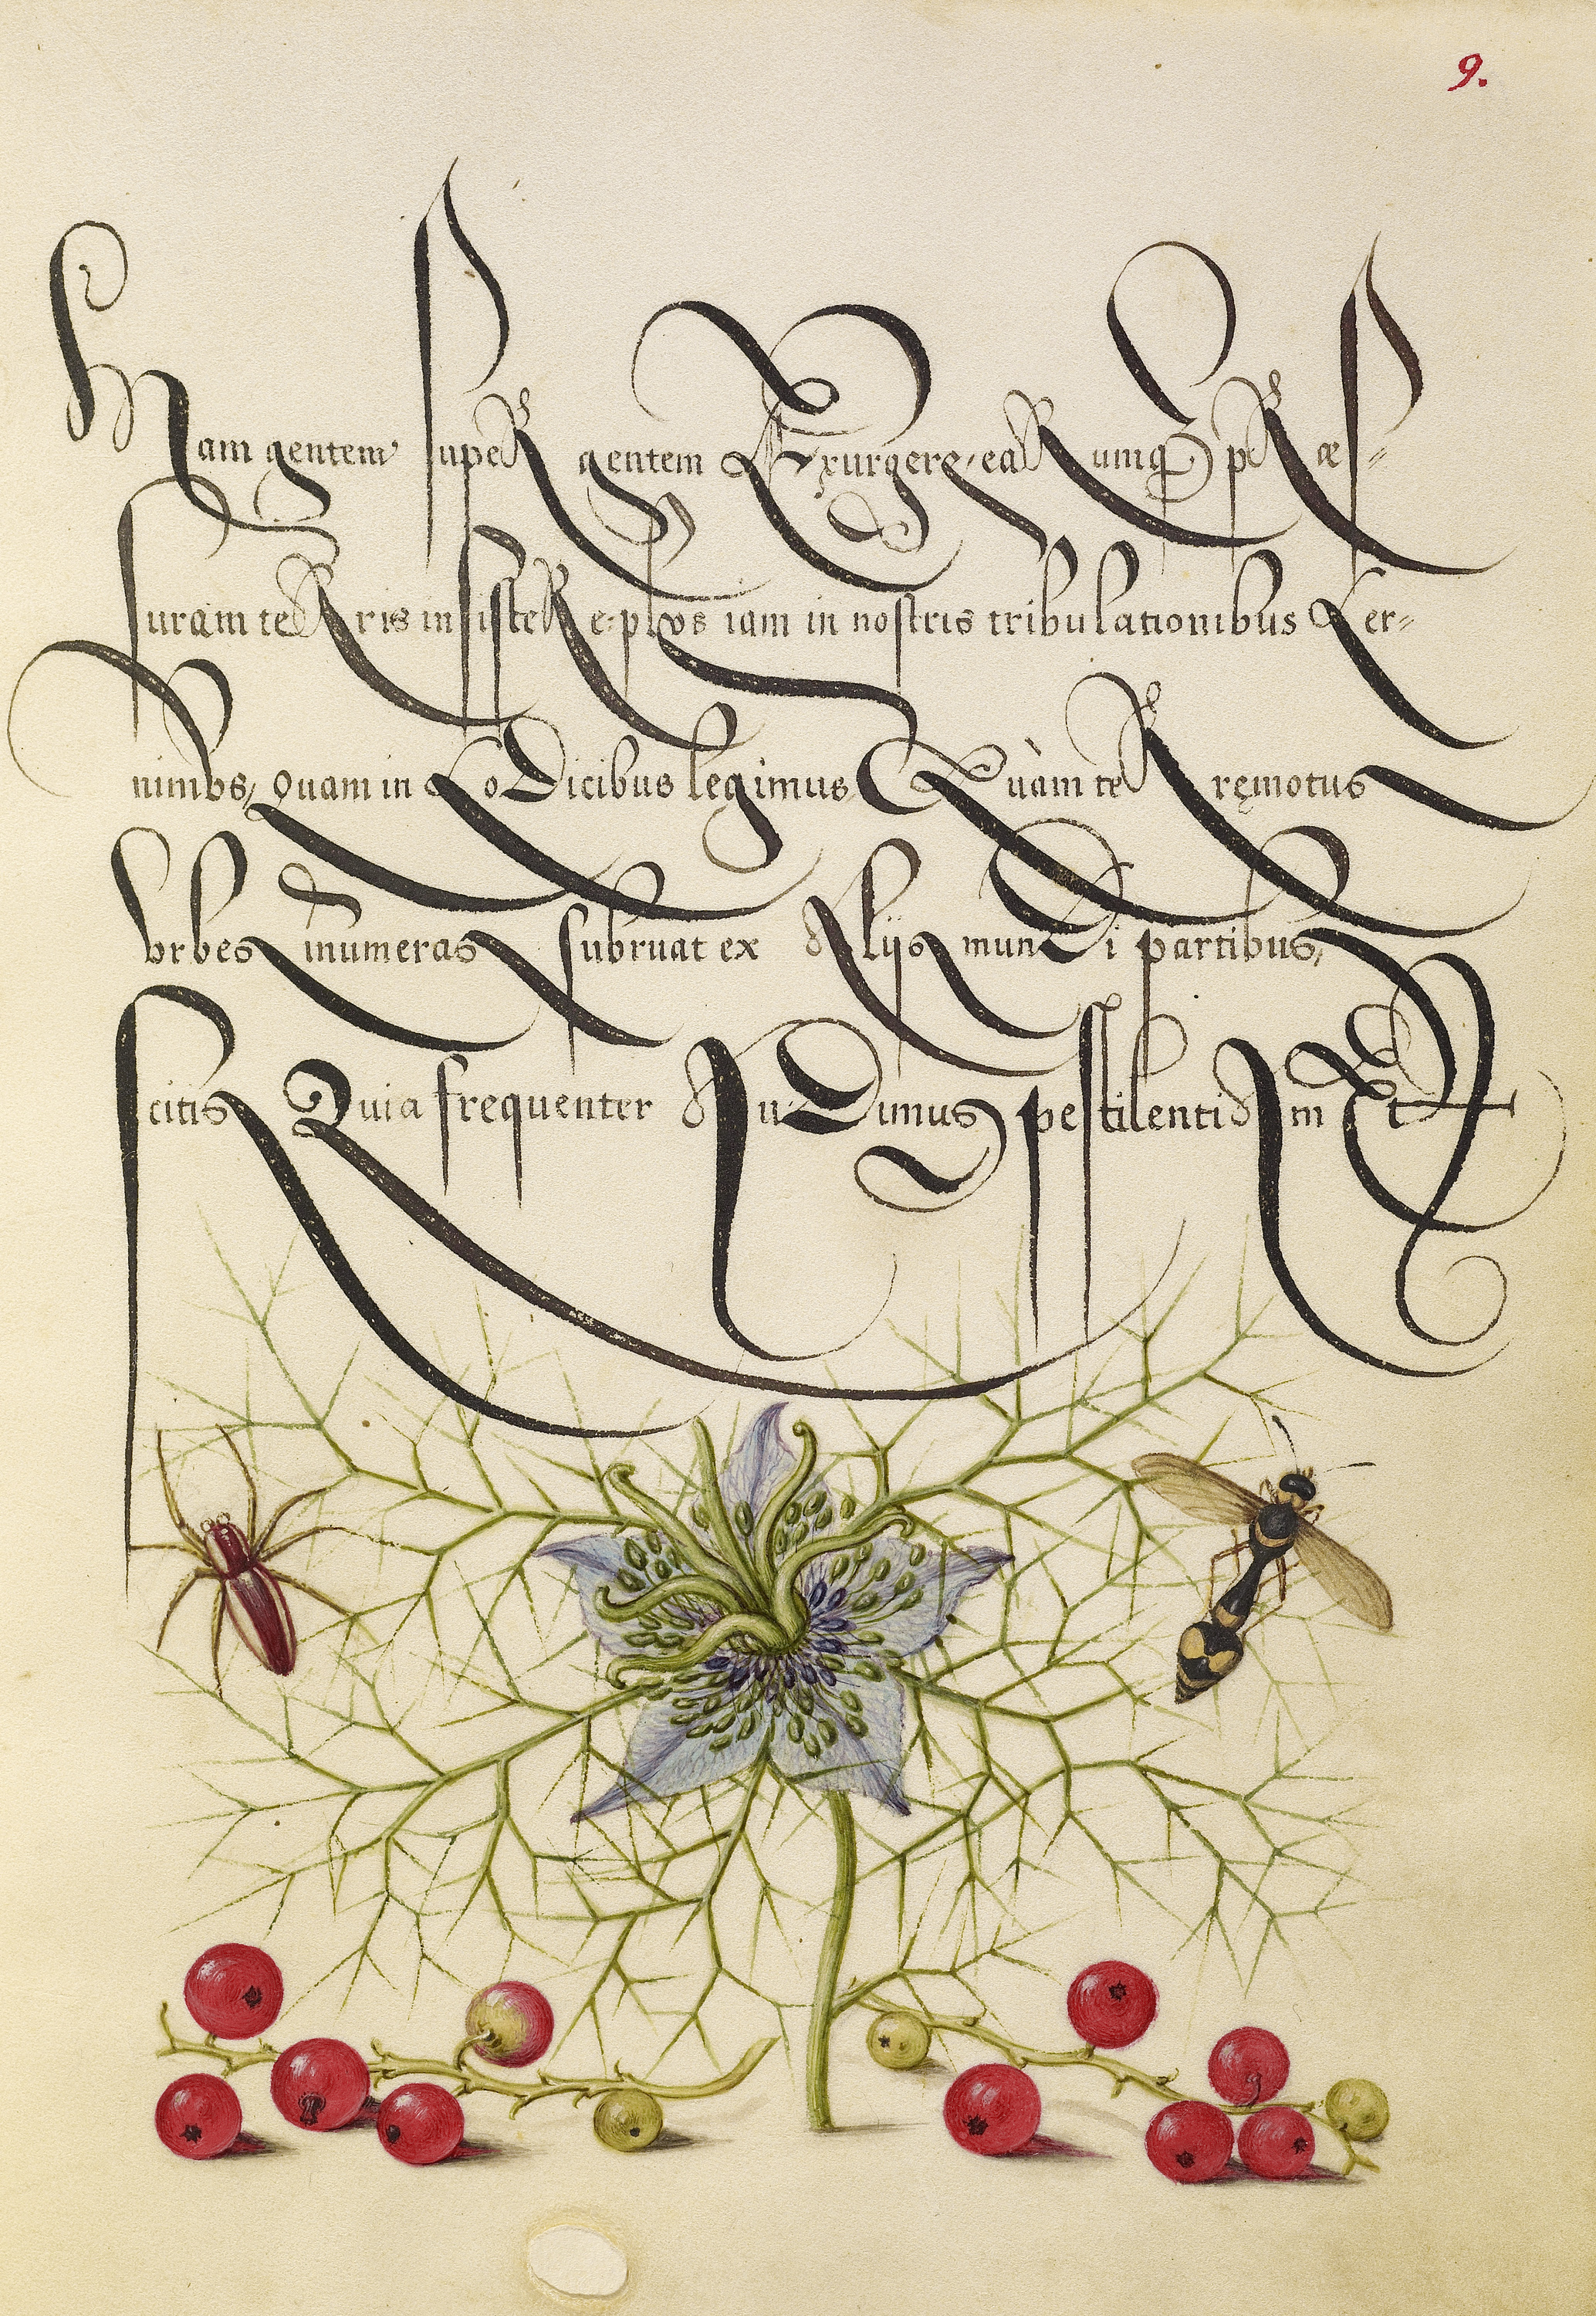 9.
Nam gentem super gentem Exurgere, earumq̃ præs=
suram terris insistere: plvs iam in nostris tribulationibus Cer=
nimvs, quam in Codicibus legimus. Quàm terręmotus
vrbes inumeras subruat ex Alijs mundi partibus,
scitis Quia frequenter Audimus pestilentiam Et